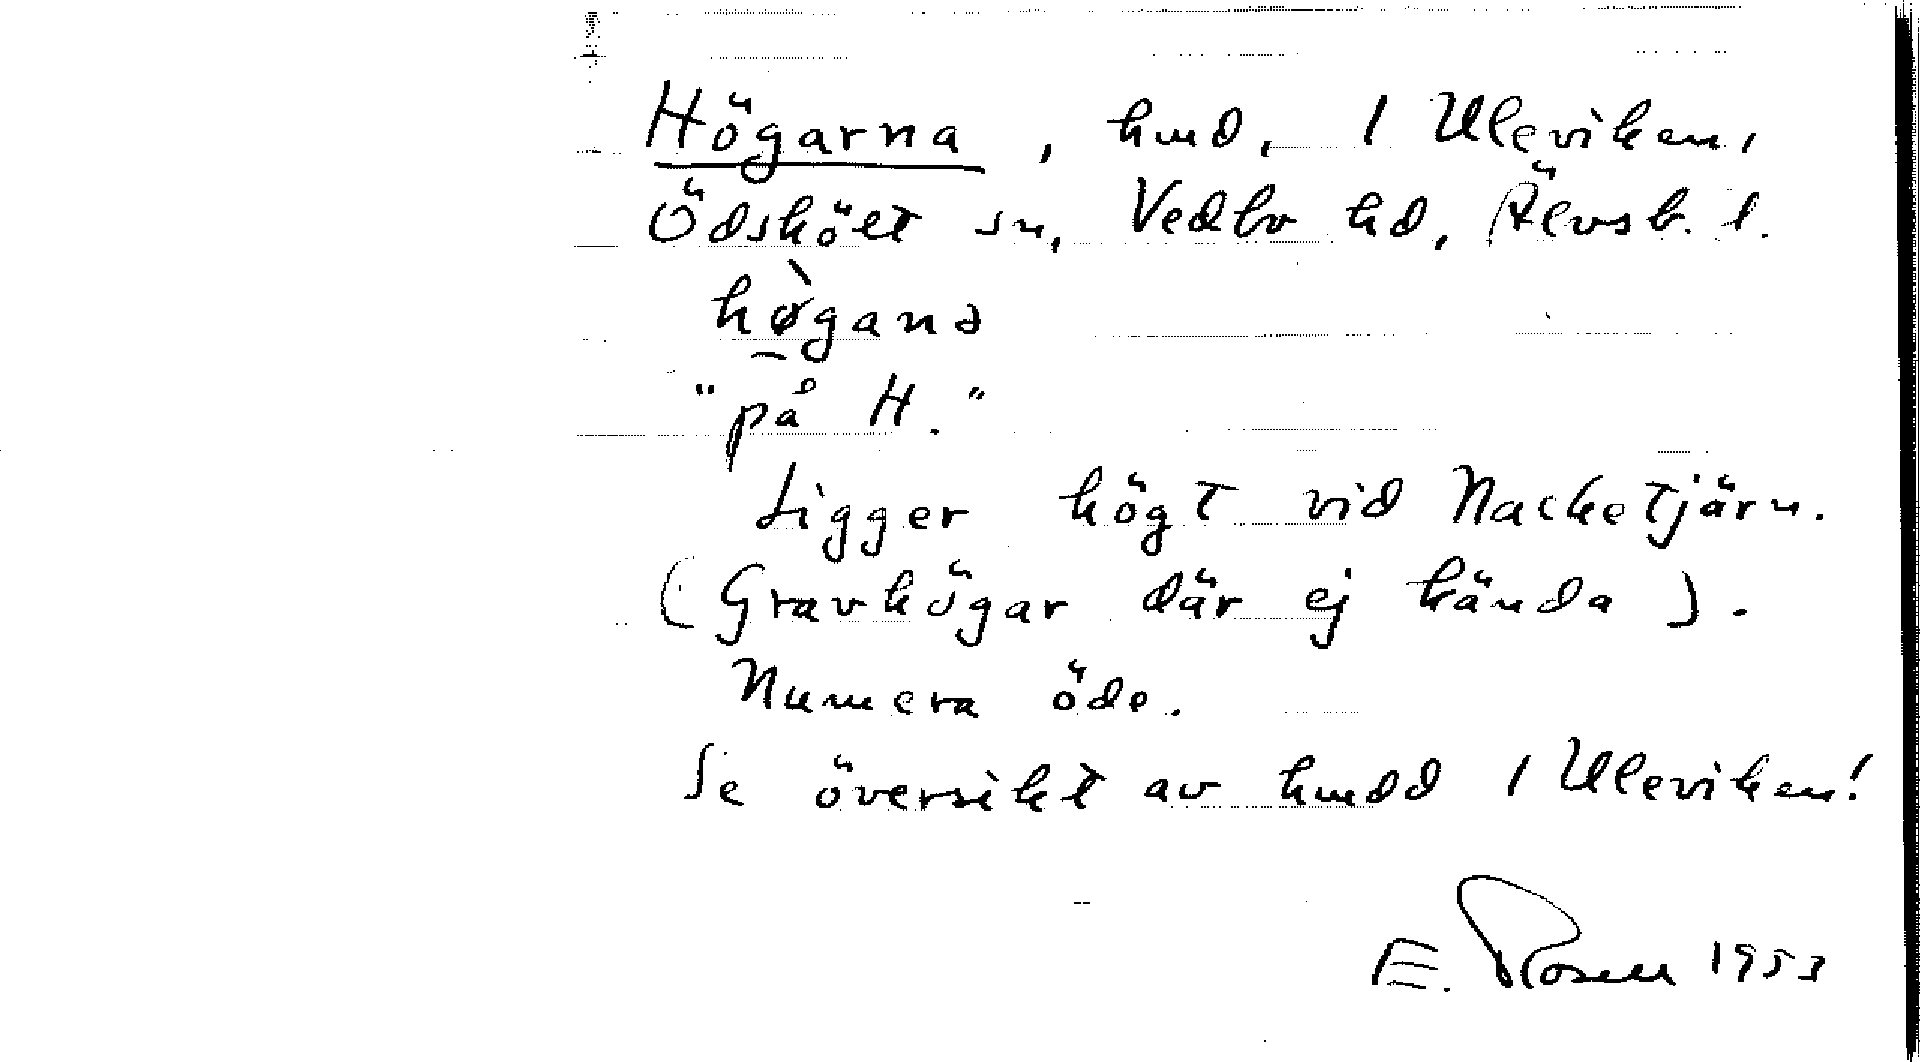 Högarna, hmd, 1 Uleviken,
Ödskölt sn, Vedbo hd, Älvsb. l.
hø̀ganə
"på H."
Ligger högt vid Nacketjärn.
(Gravhögar där ej kända).
Numera öde.
Se översikt av hmdd 1 Uleviken!
E. Rosen 1953